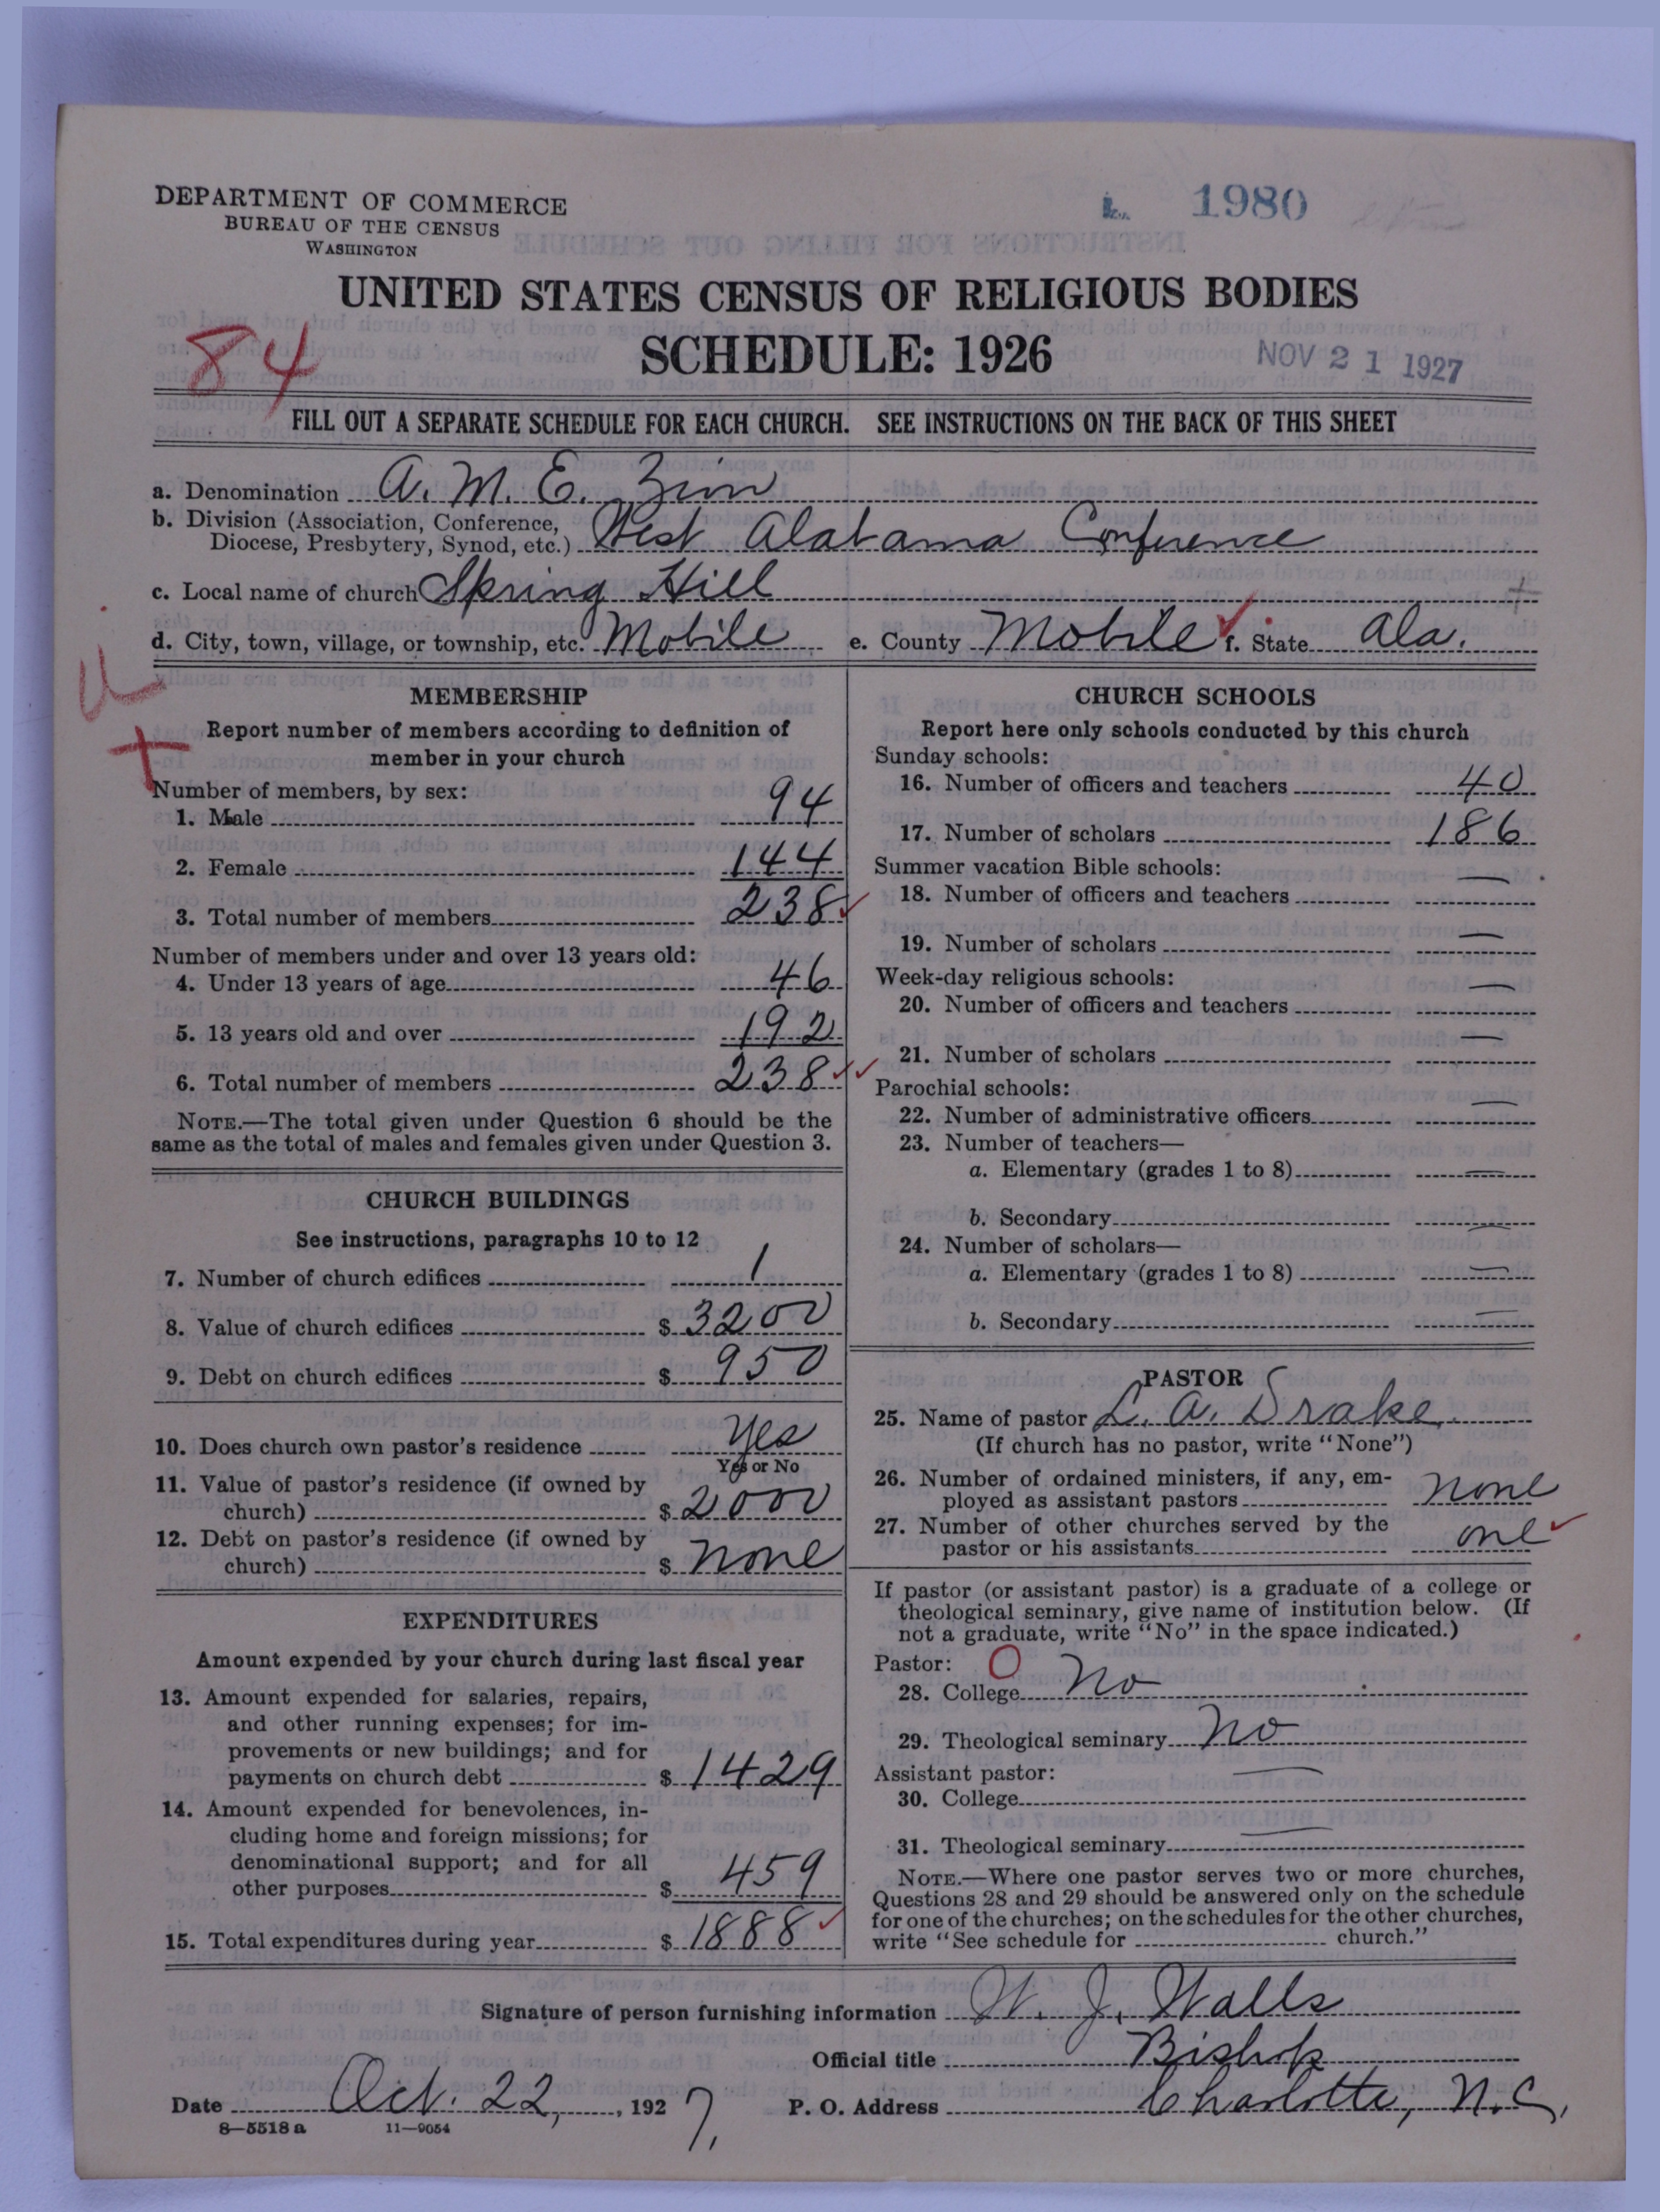 DEPARTMENT OF COMMERCE
BUREAU OF THE CENSUS
WASHINGTON
1980
UNITED STATES CENSUS OF RELIGIOUS BODIES
SCHEDULE: 1926
84
NOV 21 1927
FILL OUT A SEPARATE SCHEDULE FOR EACH CHURCH. SEE INSTRUCTIONS ON THE BACK OF THIS SHEET
a. Denomination A. M. E. Zion
b. Division (Association, Conference,
Diocese, Presbytery, Synod, etc.) West Alabama Conference
c. Local name of church Spring Hill
d. City, town, village, or township, etc. Mobile e. County Mobile f. State Ala.
MEMBERSHIP
Report number of members according to definition of
member in your church
Number of members, by sex:
1. Male 94
2. Female 144
3. Total number of members 238
Number of members under and over 13 years old:
4. Under 13 years of age 46
5. 13 years old and over 192
6. Total number of members 238
NOTE.—The total given under Question 6 should be the
same as the total of males and females given under Question 3.
CHURCH BUILDINGS
See instructions, paragraphs 10 to 12
7. Number of church edifices 1
8. Value of church edifices $ 3200
9. Debt on church edifices $ 950
10. Does church own pastor's residence Yes
Yes or No
11. Value of pastor's residence (if owned by
church) $ 2000
12. Debt on pastor's residence (if owned by
church) $ none
EXPENDITURES
Amount expended by your church during last fiscal year
13. Amount expended for salaries, repairs,
and other running expenses; for im-
provements or new buildings; and for
payments on church debt $ 1429
14. Amount expended for benevolences, in-
cluding home and foreign missions; for
denominational support; and for all
other purposes $ 459
15. Total expenditures during year $ 1888
CHURCH SCHOOLS
Report here only schools conducted by this church
Sunday schools:
16. Number of officers and teachers 40
17. Number of scholars 186
Summer vacation Bible schools:
18. Number of officers and teachers —
19. Number of scholars —
Week-day religious schools:
20. Number of officers and teachers —
21. Number of scholars —
Parochial schools:
22. Number of administrative officers —
23. Number of teachers—
a. Elementary (grades 1 to 8) —
b. Secondary —
24. Number of scholars—
a. Elementary (grades 1 to 8) —
b. Secondary —
PASTOR
25. Name of pastor L. A. Drake
(If church has no pastor, write "None")
26. Number of ordained ministers, if any, em-
ployed as assistant pastors none
27. Number of other churches served by the
pastor or his assistants one
If pastor (or assistant pastor) is a graduate of a college or
theological seminary, give name of institution below. (If
not a graduate, write "No" in the space indicated.)
Pastor: 0
28. College No
29. Theological seminary No
Assistant pastor:
30. College —
31. Theological seminary —
NOTE.—Where one pastor serves two or more churches,
Questions 28 and 29 should be answered only on the schedule
for one of the churches; on the schedules for the other churches,
write "See schedule for church."
Signature of person furnishing information W. J. Walls
Official title Bishop
Date Oct. 22, , 1927, P. O. Address Charlotte, N.C.
8—5518 a 11—9054